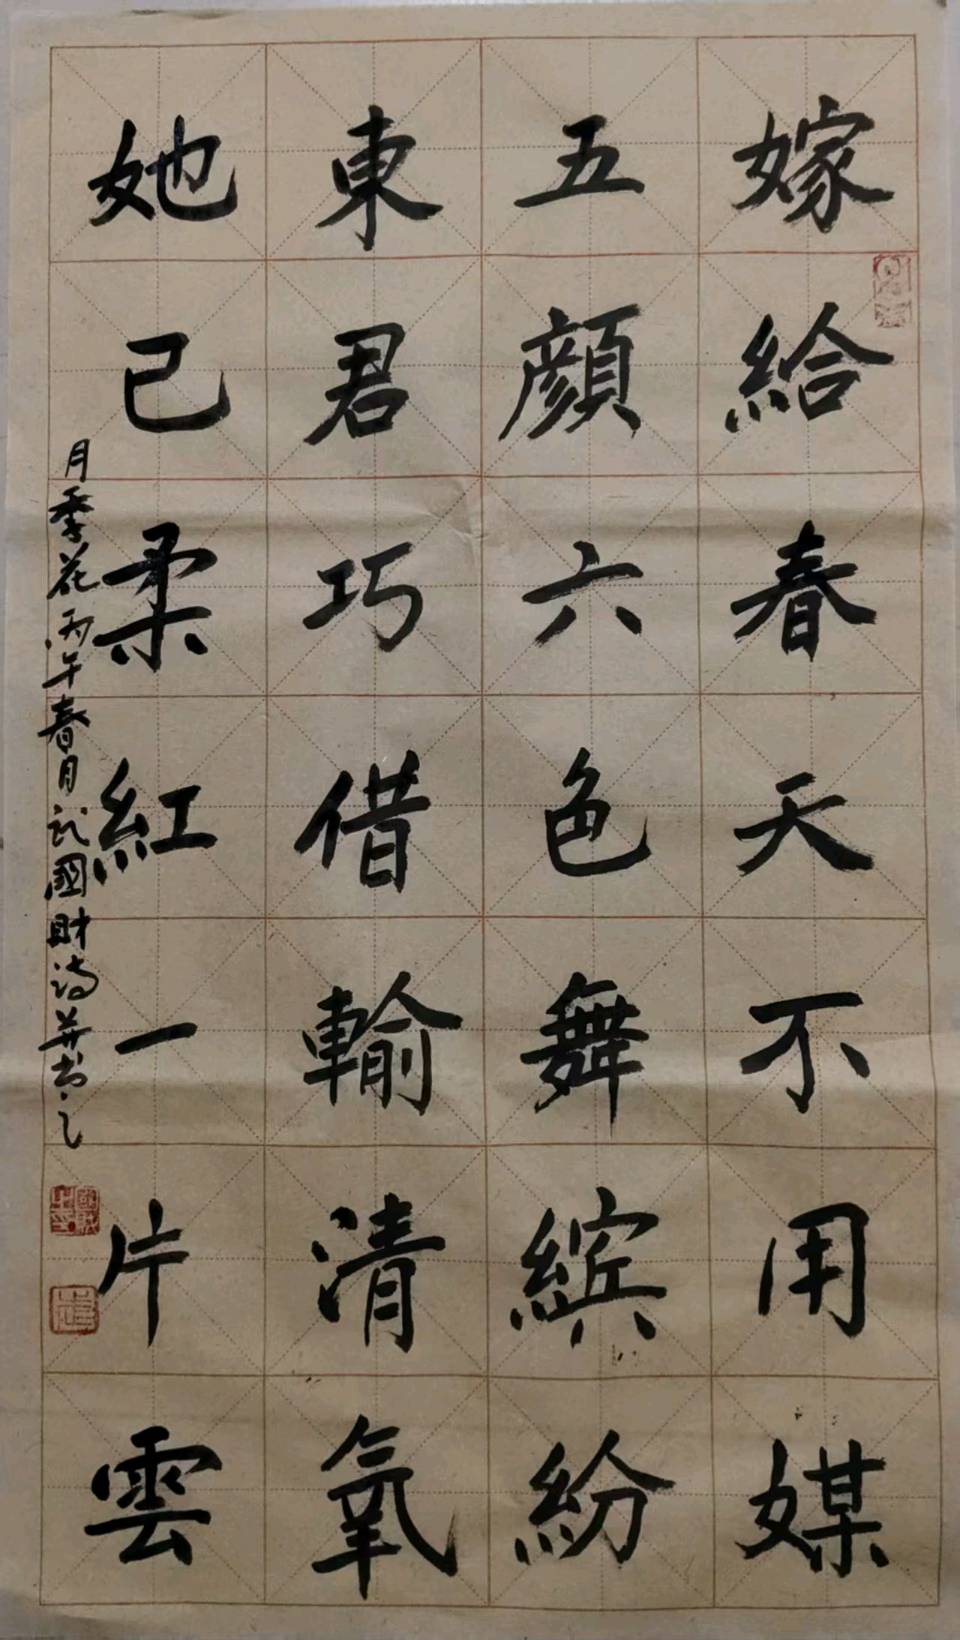 嫁給春天不用媒
五顏六色舞繽紛
東君巧借輸清氧
她已柔紅一片雲
月季花丙午春月
國財詩并書之